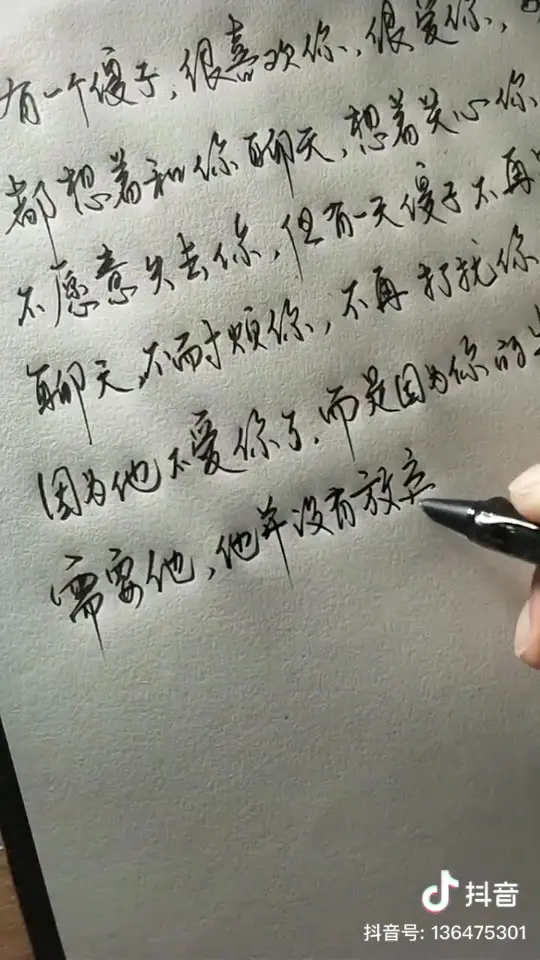 有一个傻子,很喜欢你,很爱你,
都想着和你聊天,想着关心你
不愿意失去你,但有一天傻子不再
聊天,不再烦你,不再打扰你
因为他不爱你了.而是因为你的
需要他,他并没有放弃
抖音
抖音号: 136475301